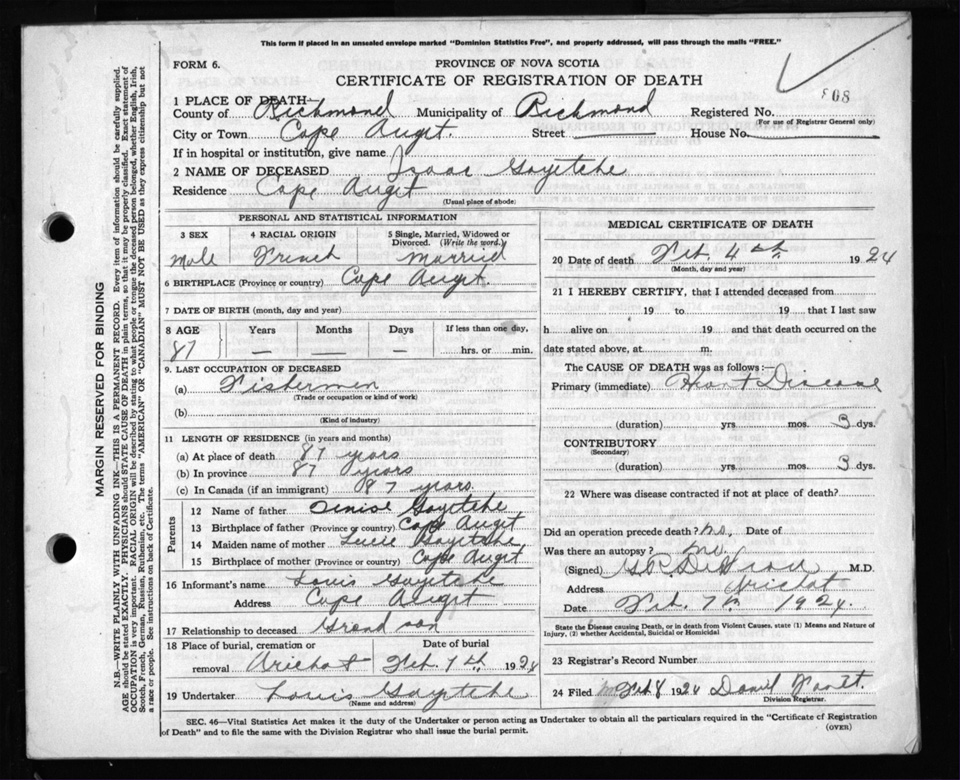 This form if placed in an unsealed envelope marked "Dominion Statistics Free", and properly addressed, will pass through the mails "FREE."
FORM 6.
PROVINCE OF NOVA SCOTIA
CERTIFICATE OF REGISTRATION OF DEATH
1 PLACE OF DEATH—
County of Richmond Municipality of Richmond Registered No. 808
(For use of Registrar General only)
City or Town Cape Auget. Street House No.
If in hospital or institution, give name
2 NAME OF DECEASED Isaac Goyetche
Residence Cape Auget
(Usual place of abode)
PERSONAL AND STATISTICAL INFORMATION
3 SEX 4 RACIAL ORIGIN 5 Single, Married, Widowed or Divorced. (Write the word.)
Male French Married
6 BIRTHPLACE (Province or country) Cape Auget.
7 DATE OF BIRTH (month, day and year)
8 AGE Years Months Days If less than one day,
87 — — — hrs. or min.
9. LAST OCCUPATION OF DECEASED
(a) Fishermen
(Trade or occupation or kind of work)
(b)
(Kind of industry)
11 LENGTH OF RESIDENCE (in years and months)
(a) At place of death 87 years
(b) In province 87 years
(c) In Canada (if an immigrant) 87 years.
Parents
12 Name of father Goyetche
13 Birthplace of father (Province or country) Cape Auget
14 Maiden name of mother Lucie Goyetche
15 Birthplace of mother (Province or country) Cape Auget
16 Informant's name Louis Goyetche
Address Cape Auget
17 Relationship to deceased Grand son
18 Place of burial, cremation or removal Arichat Date of burial Feb. 7th 1924
19 Undertaker Louis Goyetche
(Name and address)
MEDICAL CERTIFICATE OF DEATH
20 Date of death Feb. 4th 1924
(Month, day and year)
21 I HEREBY CERTIFY, that I attended deceased from
19 to 19 that I last saw
h alive on 19 and that death occurred on
date stated above, at m.
The CAUSE OF DEATH was as follows:—
Primary (immediate) Heart Disease
(duration) yrs. mos. 3 dys.
CONTRIBUTORY
(Secondary)
(duration) yrs. mos. 3 dys.
22 Where was disease contracted if not at place of death?
Did an operation precede death? no, Date of
Was there an autopsy? no.
(Signed) M.D.
Address Arichat
Date Feb. 7th 1924.
State the Disease causing Death, or in death from Violent Causes, state (1) Means and Nature of
Injury, (2) whether Accidental, Suicidal or Homicidal
23 Registrar's Record Number
24 Filed Feb 8 1924 Daniel
Division Registrar.
SEC. 46—Vital Statistics Act makes it the duty of the Undertaker or person acting as Undertaker to obtain all the particulars required in the "Certificate of Registration
of Death" and to file the same with the Division Registrar who shall issue the burial permit. (OVER)
MARGIN RESERVED FOR BINDING
N.B.—WRITE PLAINLY WITH UNFADING INK—THIS IS A PERMANENT RECORD. Every item of information should be carefully supplied.
AGE should be stated EXACTLY. PHYSICIANS should STATE CAUSE OF DEATH in plain terms, so that it may be properly classified. Exact statement of
OCCUPATION is very important. RACIAL ORIGIN will be described by stating to what people or tongue the deceased person belonged, whether English, Irish,
Scotch, French, German, Russian, Ruthenian, etc. The terms "AMERICAN" OR "CANADIAN" MUST NOT BE USED as they express citizenship but not
a race or people. See instructions on back of Certificate.